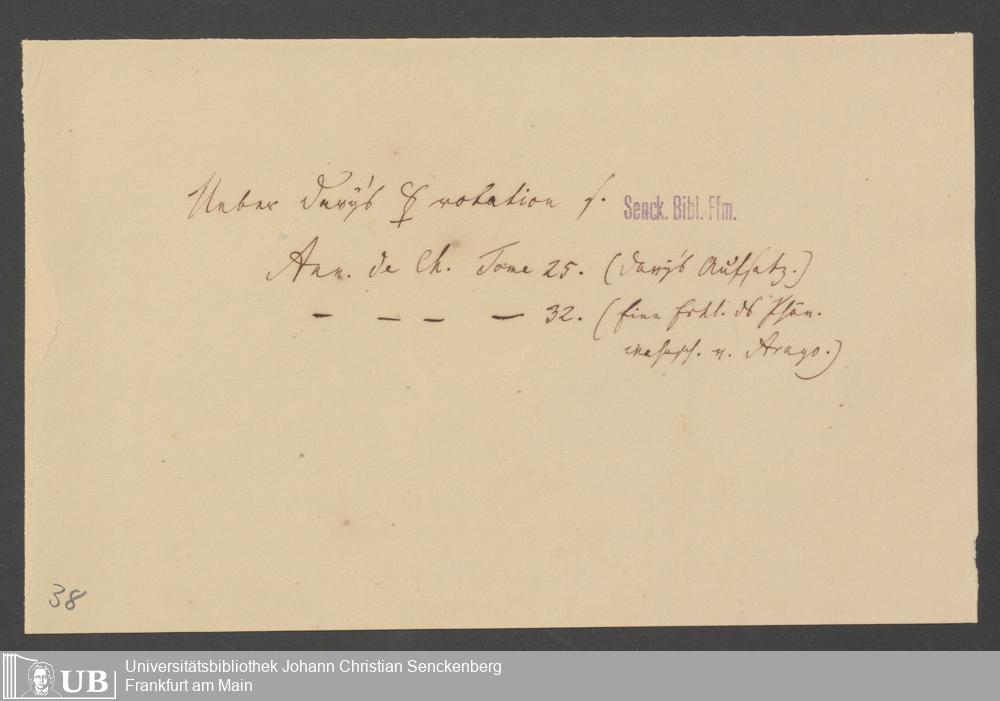 Ueber Davy's ☿ rotation s. Senck. Bibl. Ffm.
Ann. de Ch. Tome 25. (Davy's Aufsatz.)
— — — — 32. (Eine Erkl. ds Phän.
v. Arago.)
38
UB Universitätsbibliothek Johann Christian Senckenberg
Frankfurt am Main